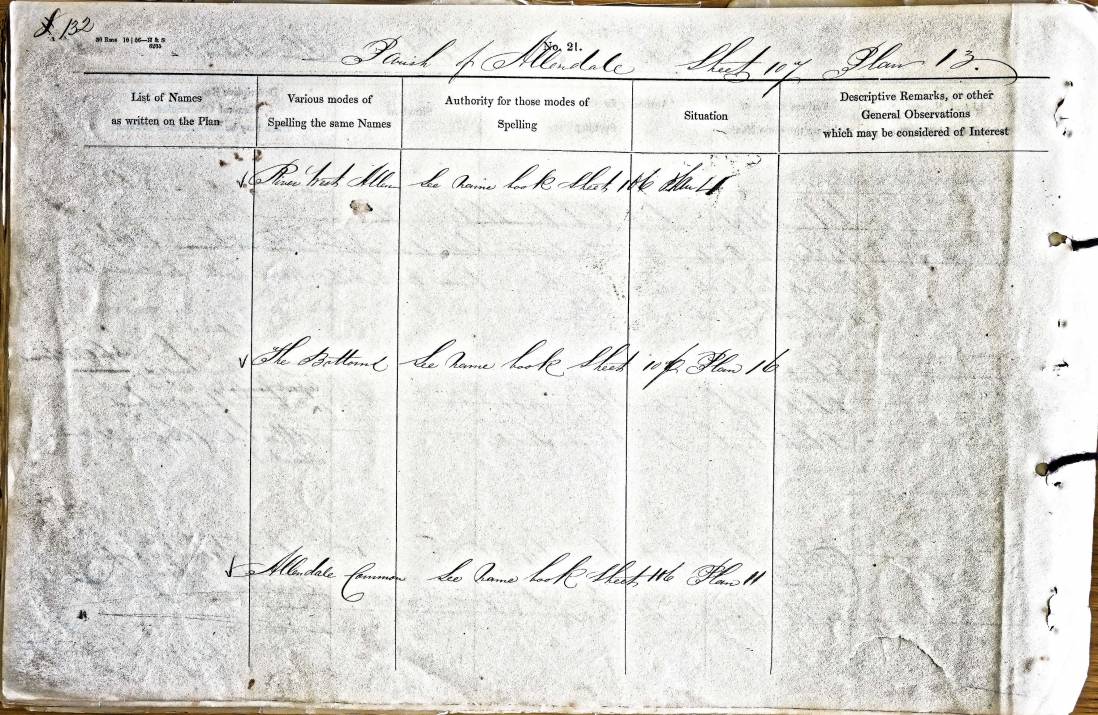 132
No. 21.
Parish of Allendale Sheet 107 Plan 13.
List of Names
as written on the Plan
Various modes of
Spelling the same Names
Authority for those modes of
Spelling
Situation
Descriptive Remarks, or other
General Observations
which may be considered of Interest
River West Allen See Name book Sheet 106 Plan 11
The Bottoms See Name book Sheet 106 Plan 16
Allendale Common See Name book Sheet 106 Plan 11